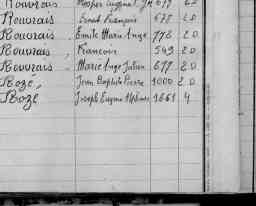 Rouvrais
Rouvrais Ernest François 678 20
Rouvrais, Emile Marie Ange 778 20
Rouvrais, François 549 20
Rouvrais, Marie Ange Julien 677 20
Rozé, Jean Baptiste Pierre 1000 20
Rozé Joseph Eugène 1661 4